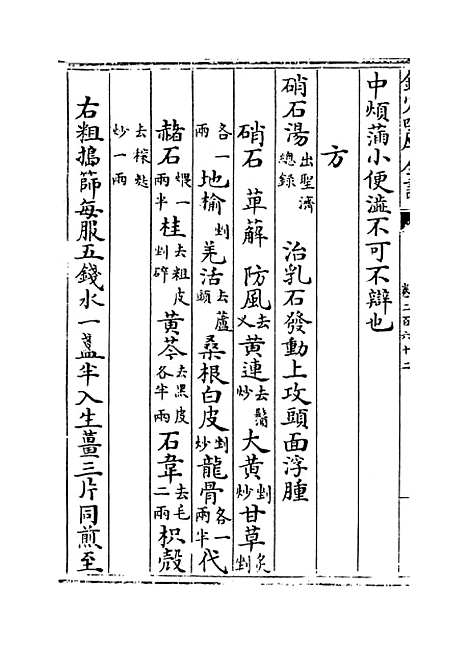 欽定四庫全書
卷二百六十二
中煩滿小便澁不可不辯也
方
硝石湯出聖濟總錄 治乳石發動上攻頭面浮腫
硝石 萆薢 防風去叉 黃連去鬚炒 大黃剉炒 甘草炙剉
各一兩 地榆剉 羌活去蘆頭 桑根白皮剉炒 龍骨各一兩半 代
赭石煨一兩半 桂去粗皮剉碎 黃芩去黑皮各半兩 石韋去毛二兩 枳殼
去穰麩炒一兩
右粗搗篩每服五錢水一盞半入生薑三片同煎至